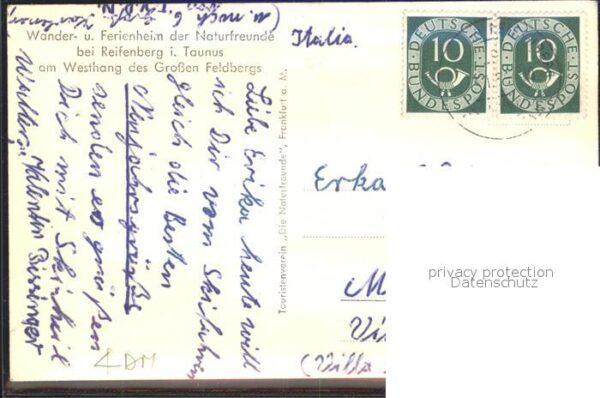 Wander- u. Ferienheim der Naturfreunde
bei Reifenberg i. Taunus
am Westhang des Großen Feldbergs
Touristenverein „Die Naturfreunde", Frankfurt a. M.
Liebe Erika heute will
ich Dir vom Skifahren
gleich die Besten
Neujahrsgrüße
senden es grüßen
Dich mit Skiheil
Walter, Valentin
(u. noch 6
Italia
DEUTSCHE
10
BUNDESPOST
DEUTSCHE
10
BUNDESPOST
Erika
M
Vi
(Villa
4 DM
privacy protection
Datenschutz